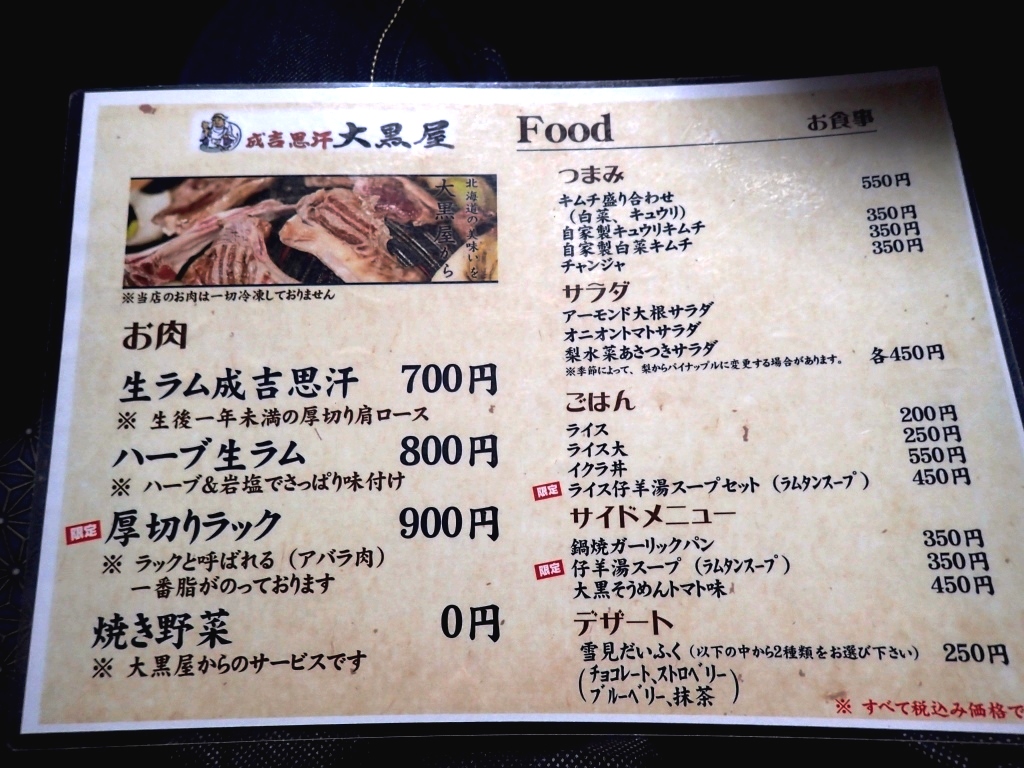 成吉思汗大黒屋
北海道の美味いを
大黒屋から
※当店のお肉は一切冷凍しておりません
お肉
生ラム成吉思汗 700円
※ 生後一年未満の厚切り肩ロース
ハーブ生ラム 800円
※ ハーブ&岩塩でさっぱり味付け
限定 厚切りラック 900円
※ ラックと呼ばれる（アバラ肉）
一番脂がのっております
焼き野菜 0円
※ 大黒屋からのサービスです
Food お食事
つまみ
キムチ盛り合わせ 550円
（白菜、キュウリ）
自家製キュウリキムチ 350円
自家製白菜キムチ 350円
チャンジャ 350円
サラダ
アーモンド大根サラダ
オニオントマトサラダ
梨水菜あさつきサラダ 各450円
※季節によって、梨からパイナップルに変更する場合があります。
ごはん
ライス 200円
ライス大 250円
イクラ丼 550円
限定 ライス仔羊湯スープセット（ラムタンスープ） 450円
サイドメニュー
鍋焼ガーリックパン 350円
限定 仔羊湯スープ（ラムタンスープ） 350円
大黒そうめんトマト味 450円
デザート
雪見だいふく（以下の中から2種類をお選び下さい） 250円
（チョコレート、ストロベリー
ブルーベリー、抹茶）
※ すべて税込み価格で